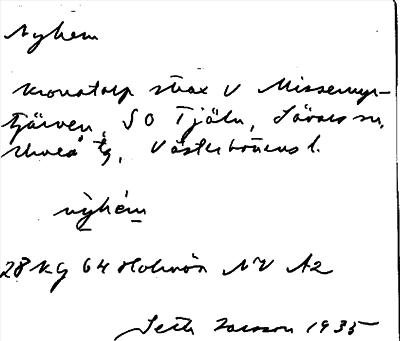 Nyhem
kronotorp strax V Missemyr-
tjärven, SO Tjäln, Sävars sn,
Umeå tg, Västerbottens l.
nỳhém
28 Kg 64 Holmön NV A2
Seth Larsson 1935